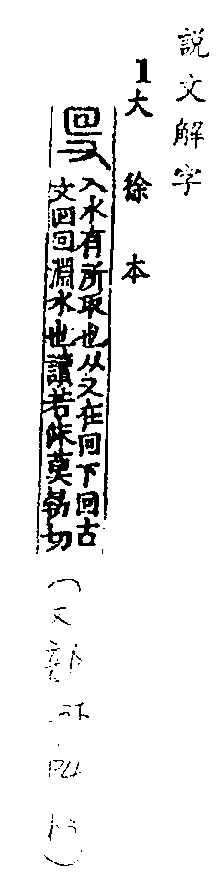 說文解字
1大徐本
入水有所取也从又在回下回古
文回回淵水也讀若沬莫勃切